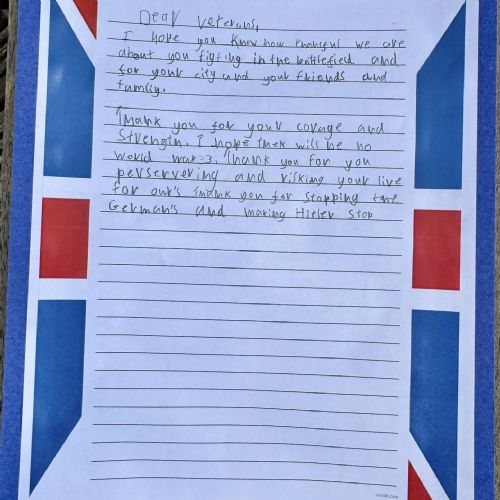 Dear Veterans,
I hope you know how thankful we are
about you figting in the battlefield and
for your city and your friends and
family.
Thank you for your corage and
Strength. I hope their will be no
world war 3. Thank you for you
perservering and risking your live
for our's Thank you for stopping the
German's and making Hitler stop